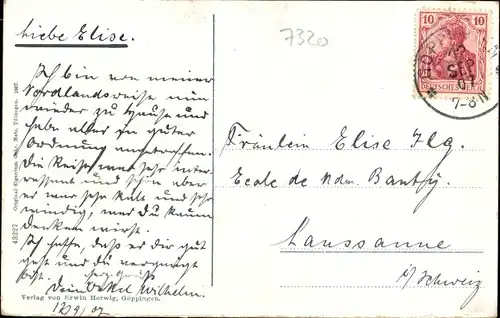 Liebe Elise.
Ich bin von meiner
Nordlandsreise nun
wieder zu Hause und
habe alles in guter
Ordnung angetroffen.
Die Reise war sehr inter-
essant und schön aber
es war sehr kalt und sehr
windig, wie Du kaum
denken wirst.
Ich hoffe, daß es dir gut
geht und du vergnügt
bist.
Dein Onkel Wilhelm.
Verlag von Erwin Herwig, Göppingen.
12/9/07
43227
7320
10 10
DEUTSCHES REICH
7-8 N
Fräulein Elise Ilg.
Ecole de Mdm. Bantty
Laussanne
i/Schweiz